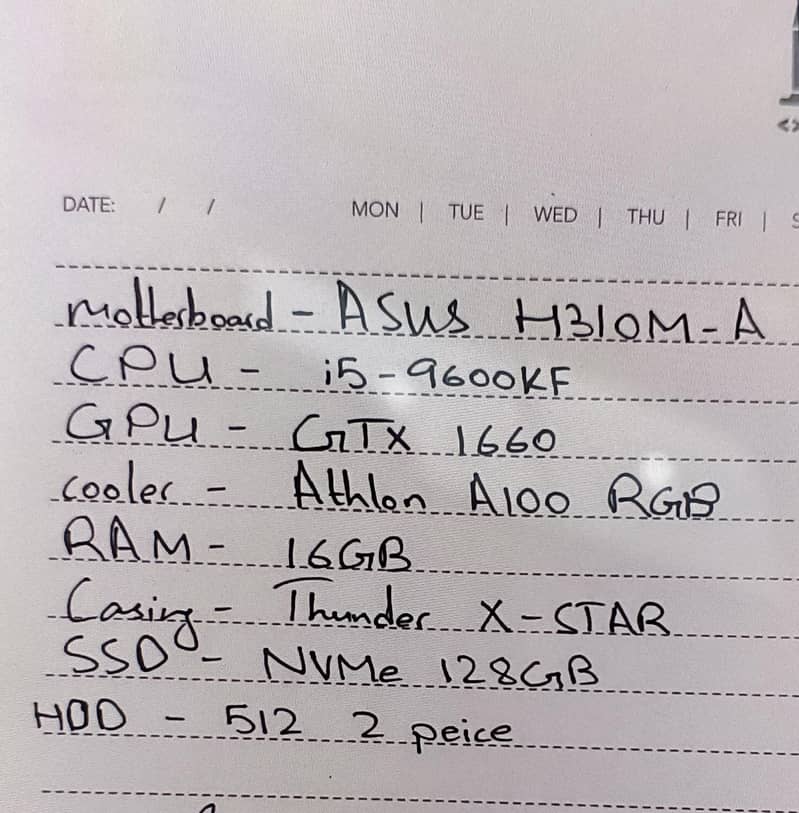 DATE: / /
MON | TUE | WED | THU | FRI |
motherboard - ASUS H310M-A
CPU - i5-9600KF
GPU - GTX 1660
cooler - Athlon A100 RGB
RAM - 16GB
Casing - Thunder X-STAR
SSD - NVMe 128GB
HDD - 512 2 peice